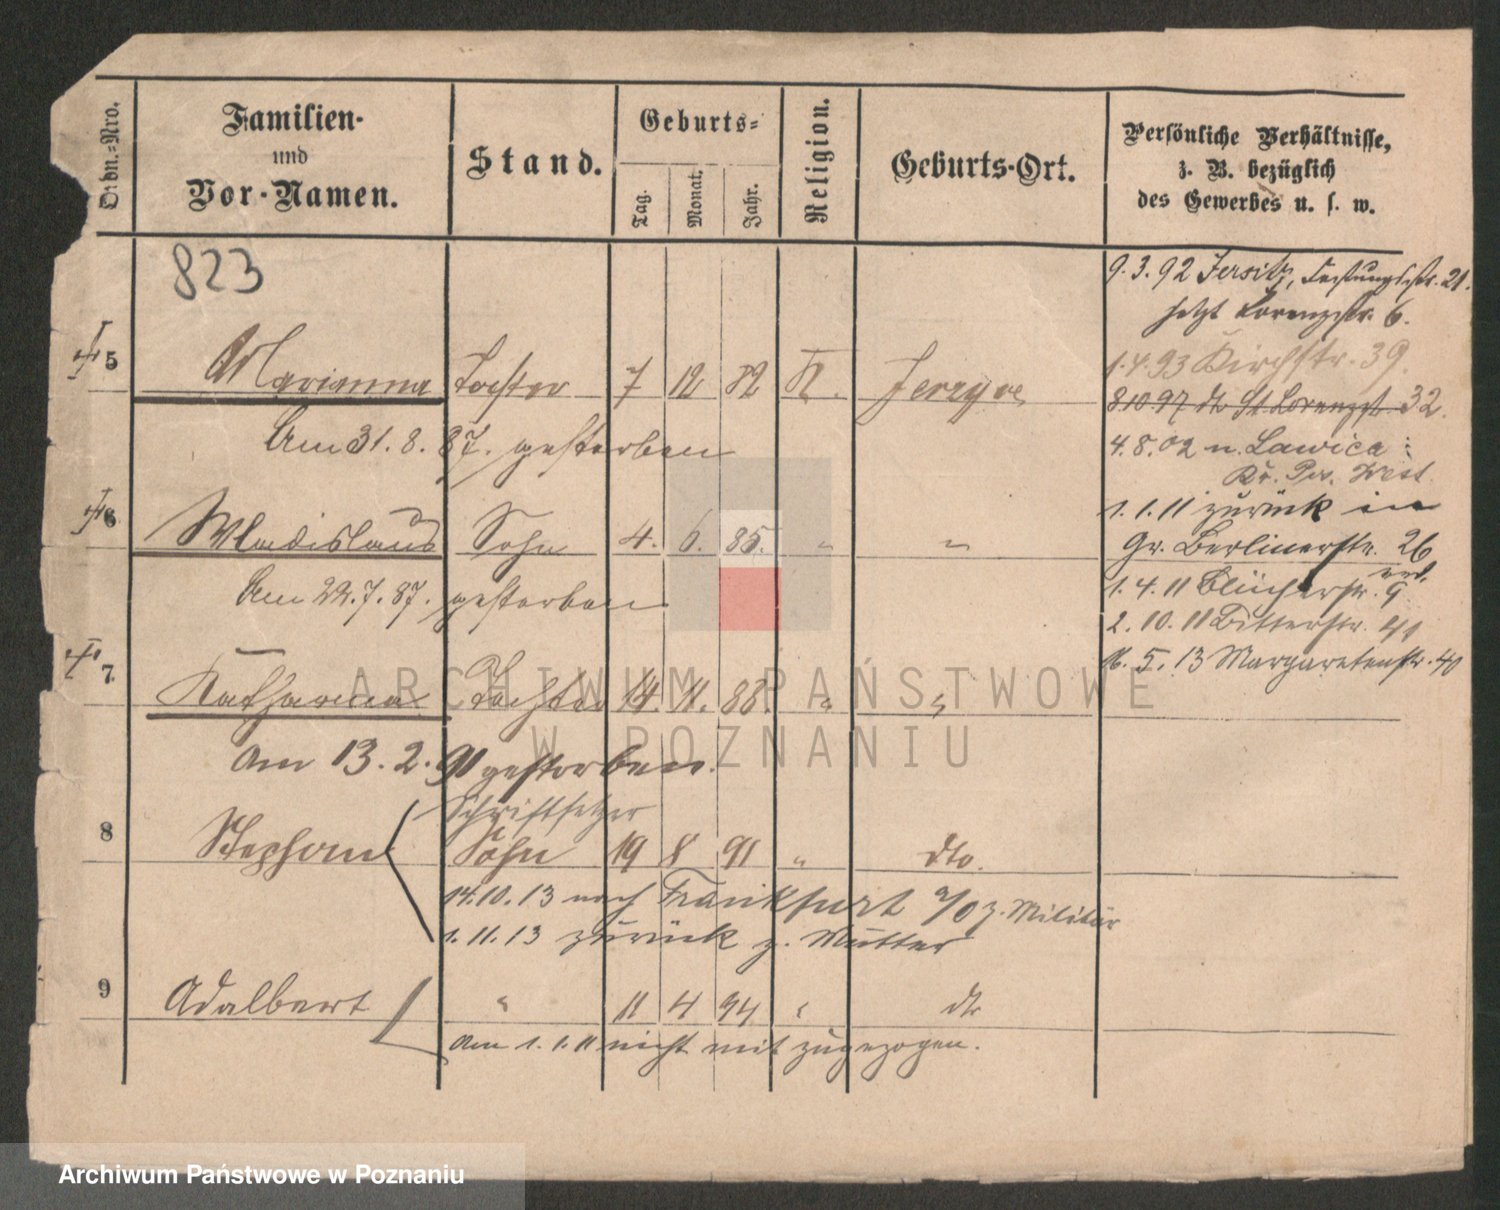 Ordn.-Nro. Familien- und Vor-Namen. Stand. Geburts- Tag. Monat. Jahr. Religion. Geburts-Ort. Persönliche Verhältnisse, z. B. bezüglich des Gewerbes u. s. w.
823
9.3.92 Jersitz, Festungsstr. 21.
jetzt Lorenzstr. 6.
1.4.93 Kirchstr. 39.
5 Marianna Tochter 7 12 82 K.
8 10 97 St Lorenzst 32.
Am 31. 8. 87. gestorben
4. 8. 02 n. Lawica
Kr. Pos. West.
6 Wladislaus Sohn 4. 6. 85. " "
1. 1. 11 zurück in
Gr. Berlinerstr. 26
Am 22. 7. 87. gestorben
1. 4. 11 Blücherstr. 9
2. 10. 11 Bitterstr. 41
16. 5. 13 Margaretenstr. 40
7. Katharina Tochter 14. 11. 88. " "
am 13. 2. 91 gestorben.
Schriftsetzer
8 Stephan Sohn 19 8 91 " dto.
14. 10. 13 nach Frankfurt a/O z. Militär
1. 11. 13 zurück z. Mutter
9 Adalbert " 11 4 94 " dto
am 1. 1. 11 nicht mit zugezogen.
ARCHIWUM PAŃSTWOWE
W POZNANIU
Archiwum Państwowe w Poznaniu